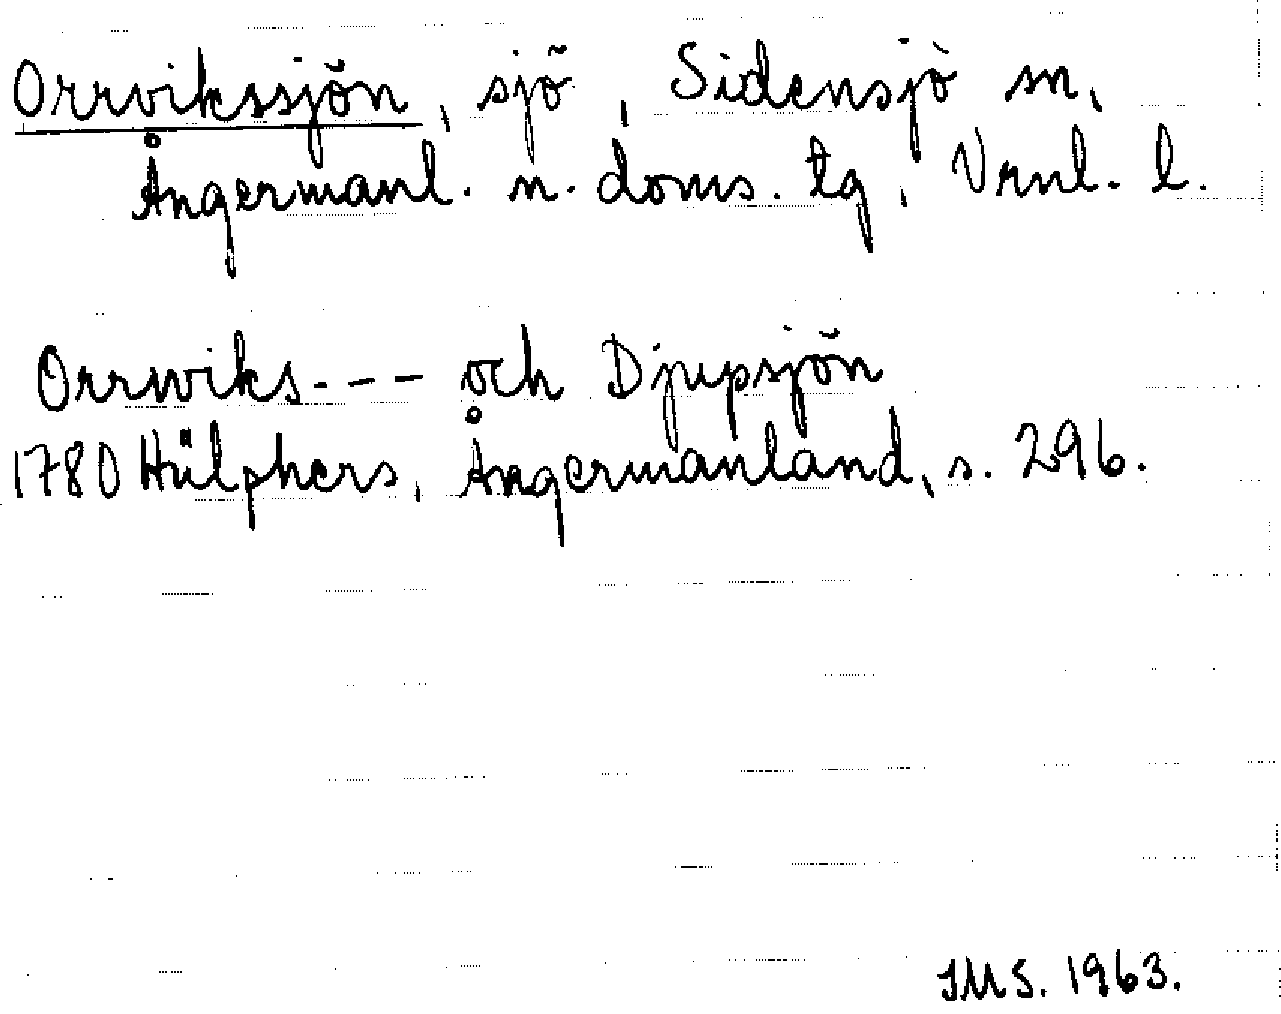 Orrvikssjön, sjö, Sidensjö sn,
Ångermanl. n. doms. tg, Vrnl. l.
Orrwiks--- och Djupsjön
1780 Hülphers, Ångermanland, s. 296.
IMS. 1963.